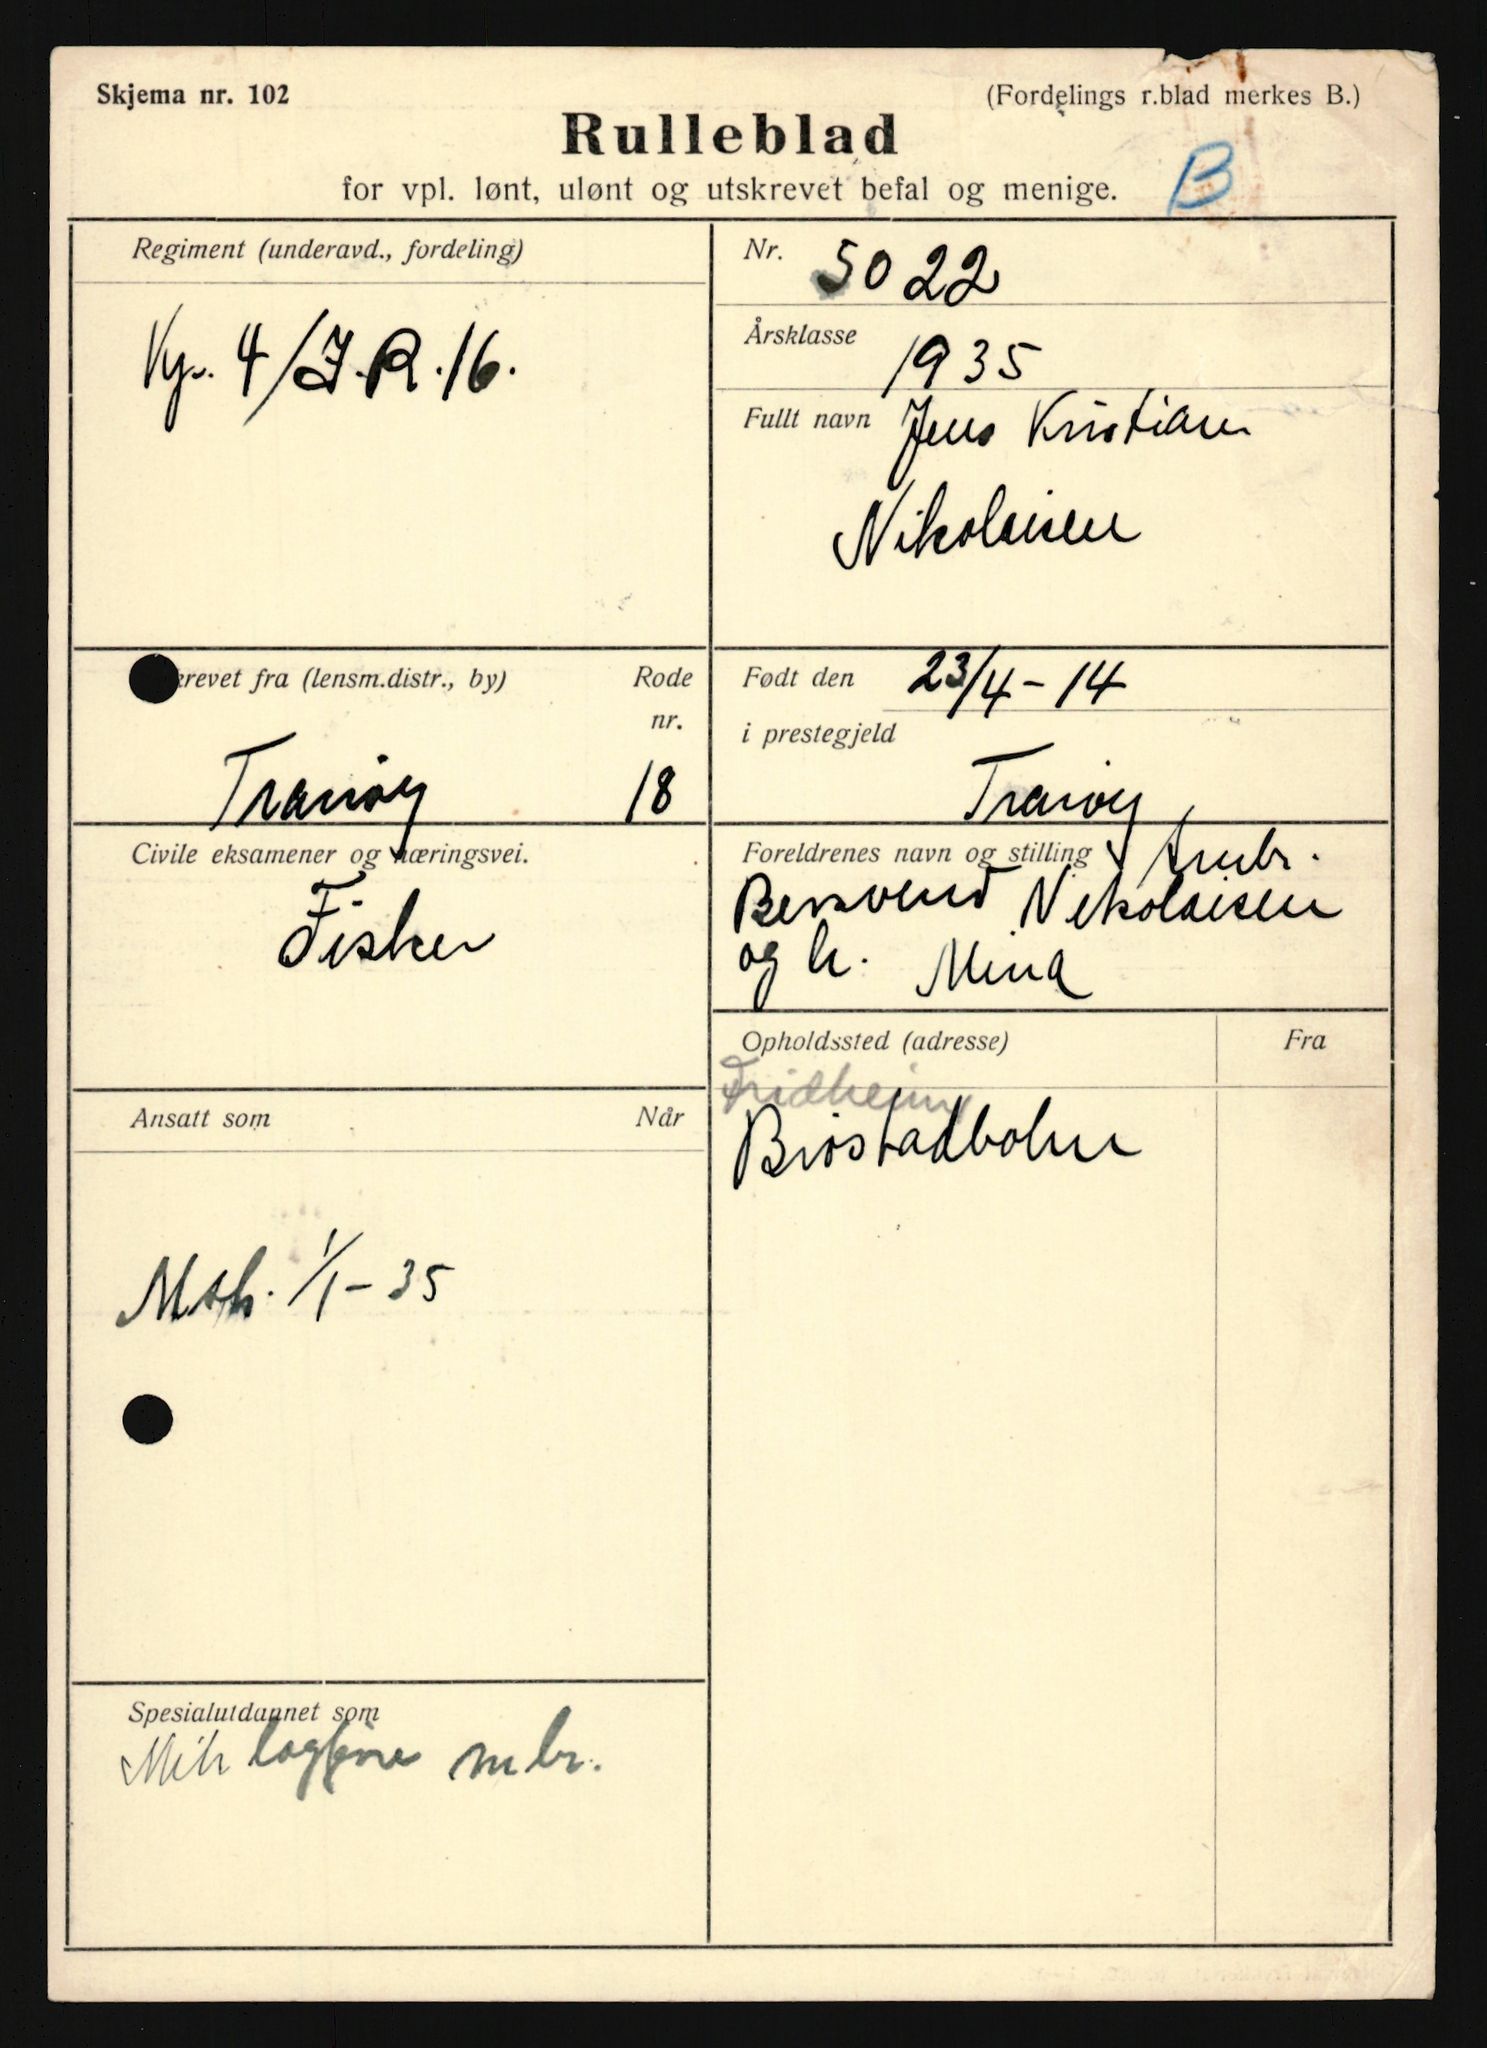 Skjema nr. 102
(Fordelings r.blad merkes B.)
Rulleblad
for vpl. lønt, ulønt og utskrevet befal og menige.
B
Regiment (underavd., fordeling)
Kp. 4/J.R.16.
Nr. 5022
Årsklasse 1935
Fullt navn Jens Kristian
Nikolaisen
krevet fra (lensm.distr., by) Rode
nr.
Tranøy 18
Født den 23/4-14
i prestegjeld
Tranøy
Civile eksamener og næringsvei.
Fisker
Foreldrenes navn og stilling Arubr.
Bersvend Nikolaisen
og h. Mina
Opholdssted (adresse) Fra
Fridheim
Brøstadbotn
Ansatt som Når
Msk. 1/1-35
Spesialutdannet som
mbr.